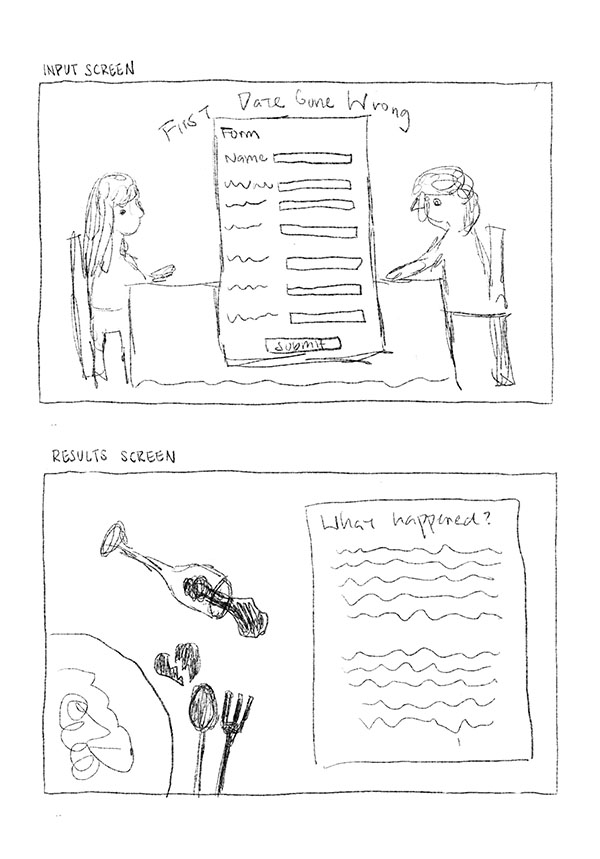 INPUT SCREEN
First Date Gone Wrong
Form
Name
Submit
RESULTS SCREEN
What happened?